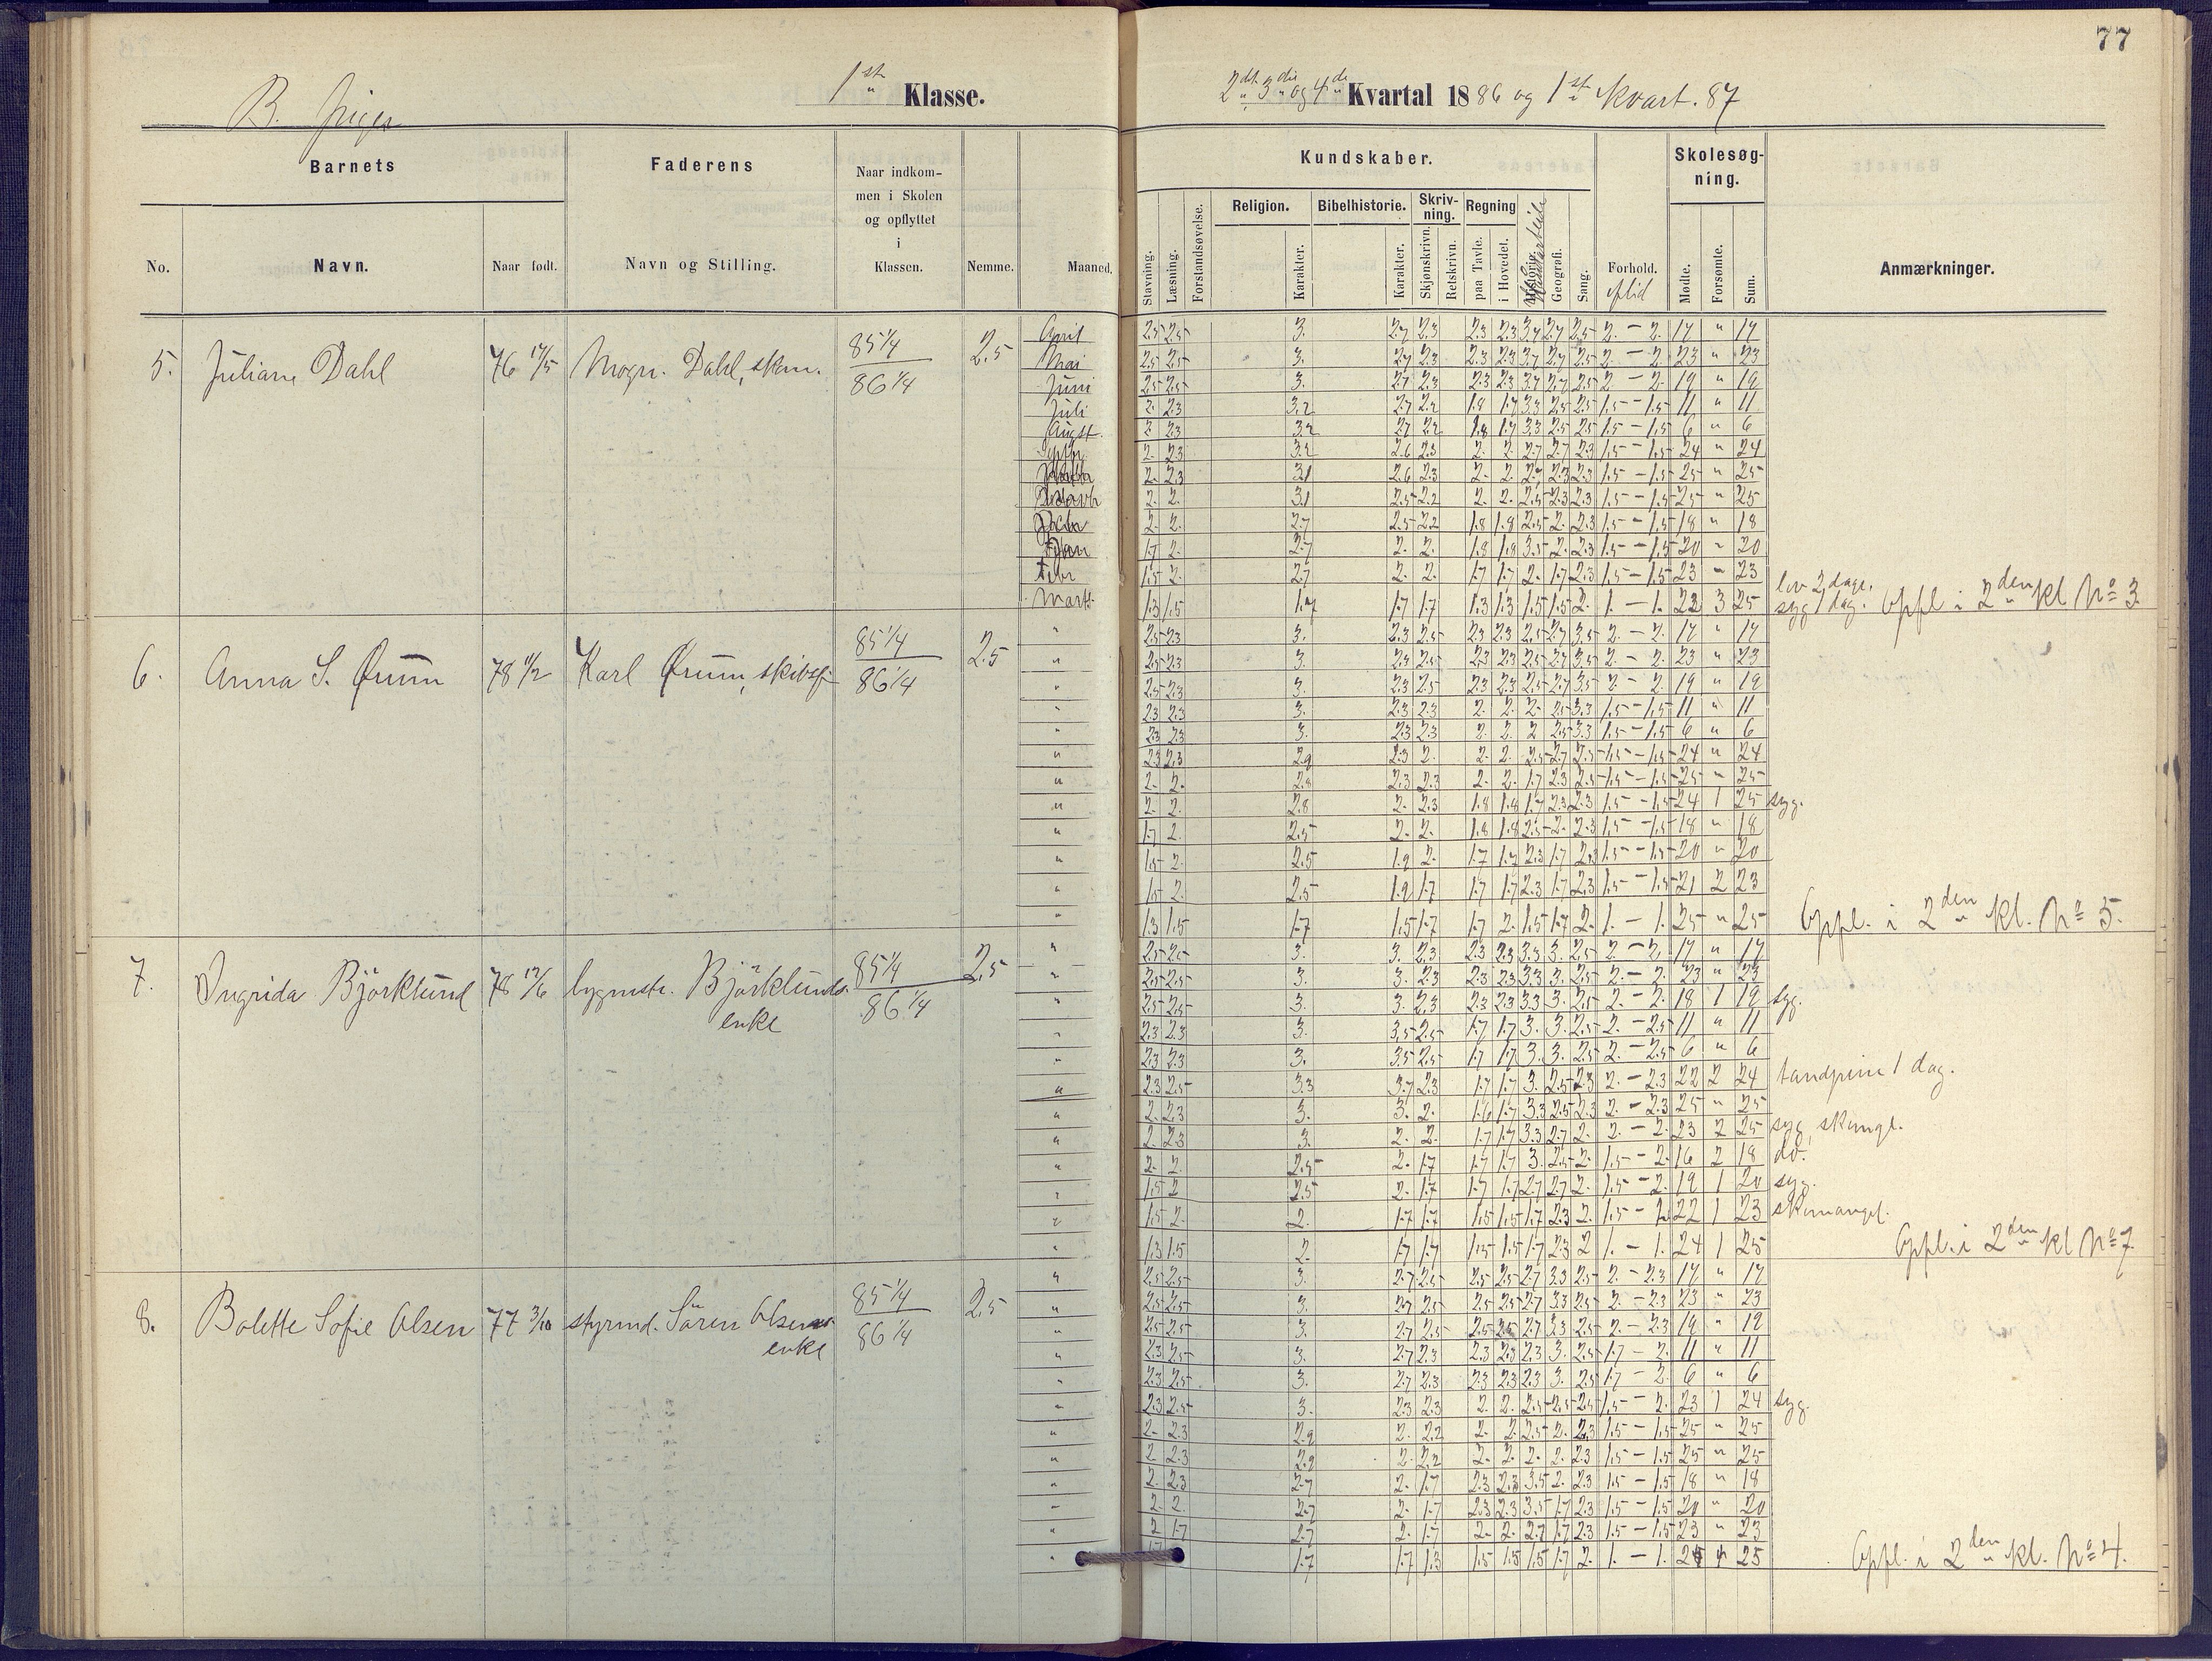 77
B. piger
1ste Klasse.
2det 3die og 4de Kvartal 1886 og 1ste Kvart. 87
Barnets
Faderens
Naar indkom-
men i Skolen
og opflyttet
i
Klassen.
Kundskaber.
Skolesøg-
ning.
No.
Navn.
Naar født.
Navn og Stilling.
Nemme.
Maaned.
Stavning.
Læsning.
Forstandsøvelse.
Religion.
Karakter.
Bibelhistorie.
Karakter.
Skriv-
ning.
Skjønskrivn.
Retskrivn.
Regning
paa Tavle.
i Hovedet.
Historie.
Geografi.
Sang.
Forhold.
Flid
Mødte.
Forsømte.
Sum.
Anmærkninger.
5. Juliane Dahl 76 17/5 Mogn. Dahl, skom. 85 1/4 2.5
86 1/4
April 2.5 2.5 3. 2.7 2.3 2.3 2.3 3.7 2.7 2.5 2. - 2. 17 " 17
Mai 2.5 2.5 3. 2.7 2.3 2.3 2.3 3.7 2.7 2.5 2. - 2. 23 " 23
Juni 2.5 2.5 3. 2.7 2.3 2.3 2.3 3.7 2.7 2.5 2. - 2. 19 " 19
Juli 2. 2.3 3.2 2.7 2.2 1.8 1.7 3.3 2.5 2.5 1.5 - 1.5 11 " 11
Augst. 2. 2.3 3.2 2.7 2.2 1.8 1.7 3.3 2.5 2.5 1.5 - 1.5 6 " 6
Septbr. 2. 2.3 3.2 2.6 2.3 2. 2. 2.7 2.7 2.3 1.5 - 1.5 24 " 24
2. 2.3 3.1 2.6 2.3 2. 2. 2.7 2.3 2.3 1.5 - 1.5 25 " 25
2. 2. 3.1 2.5 2.2 2. 2. 2.5 2.3 2.3 1.5 - 1.5 25 " 25
2. 2. 2.7 2.5 2.2 1.8 1.8 2.5 2. 2.3 1.5 - 1.5 18 " 18
Jan 1.7 2. 2.7 2. 2. 1.8 1.8 3.5 2. 2.3 1.5 - 1.5 20 " 20
Febr 1.5 2. 2.7 2. 2. 1.7 1.7 2. 1.7 2.3 1.5 - 1.5 23 " 23 lov 2 dage,
Marts 1.3 1.5 1.7 1.7 1.7 1.3 1.3 1.5 1.5 2. 1. - 1. 22 3 25 syg 1 dag. Opfl i 2den kl No 3
6. Anna S. Ørum 78 11/2 Karl Ørum, skibsf. 85 1/4 2.5
86 1/4
" 2.5 2.3 3. 2.3 2.5 2.3 2.3 2.5 2.7 3.5 2. - 2. 17 " 17
" 2.5 2.3 3. 2.3 2.5 2.3 2.3 2.5 2.7 3.5 2. - 2. 23 " 23
" 2.5 2.3 3. 2.3 2.5 2.3 2.3 2.5 2.7 3.5 2. - 2. 19 " 19
" 2.3 2.3 3. 2.3 2.3 2. 2. 2. 2.5 3.3 1.5 - 1.5 11 " 11
" 2.3 2.3 3. 2.3 2.3 2. 2. 2 2.5 3.3 1.5 - 1.5 6 " 6
" 2.3 2.3 2.9 2.3 2. 2. 2. 2.5 2.7 2.5 1.5 - 1.5 24 " 24
" 2. 2. 2.8 2.3 2.3 2. 2. 1.7 2.3 2.5 1.5 - 1.5 25 " 25
" 2. 2. 2.8 2. 2.3 1.8 1.8 1.7 2.3 2.3 1.5 - 1.5 24 1 25 syg.
" 1.7 2. 2.5 2. 2. 1.8 1.8 2.5 2. 2.3 1.5 - 1.5 18 " 18
" 1.5 2. 2.5 1.9 2. 1.7 1.7 2.3 1.7 2.3 1.5 - 1.5 20 " 20
" 1.5 2. 2.5 1.9 1.7 1.7 1.7 2.3 1.7 2.3 1.5 - 1.5 21 2 23
" 1.3 1.5 1.7 1.5 1.7 1.7 2. 1.5 1.7 2. 1. - 1. 25 " 25 Opfl. i 2den kl. No 5.
7. Ingrida Björklund 78 17/6 bygmstr. Björklunds 85 1/4 2.5
enke 86 1/4
" 2.5 2.5 3. 3. 2.3 2.3 2.3 3.3 3. 2.5 2. - 2. 17 " 17
" 2.5 2.5 3. 3. 2.3 2.3 2.3 3.3 3. 2.5 2. - 2. 23 " 23
" 2.5 2.5 3. 3. 2.3 2.3 2.3 3.3 3. 2.5 2. - 2. 18 1 19 syg.
" 2.3 2.3 3. 3.5 2.5 1.7 1.7 3. 3. 2.5 2. - 2.5 11 " 11
" 2.3 2.3 3. 3.5 2.5 1.7 1.7 3. 3. 2.5 2. - 2.5 6 " 6
" 2.3 2.5 3.3 3.7 2.3 1.7 1.7 3. 2.5 2.3 2. - 2.3 22 2 24 tandpine 1 dag.
" 2. 2.3 3. 3. 2. 1.6 1.7 3.3 2.5 2.3 2. - 2.3 25 " 25
" 2. 2.3 3. 2. 2. 1.7 1.7 3.3 2.7 2. 2. - 2. 23 2 25 syg, skomgl.
" 2. 2. 2.5 2. 1.7 1.7 1.7 3. 2.5 2. 1.5 - 2. 16 2 18 do.
" 1.5 2 2.5 2. 1.7 1.7 1.7 2.7 2.7 2. 1.5 - 2. 19 1 20 syg.
" 1.5 2. 2. 1.7 1.7 1.5 1.5 1.7 2.3 2. 1.5 - 2 22 1 23 skomangel.
" 1.3 1.5 2. 1.7 1.7 1.5 1.5 1.7 2.3 2 1. - 1. 24 1 25 Opfl. i 2den kl No 7
8. Bolette Sofie Olsen 77 3/10 styrmd. Sören Olsens 85 1/4 2.5
enke 86 1/4
" 2.5 2.5 3. 2.7 2.5 2.5 2.5 2.7 3.3 2.5 2. - 2.3 17 " 17
" 2.5 2.5 3. 2.7 2.5 2.5 2.5 2.7 3.3 2.5 2. - 2.3 23 " 23
" 2.5 2.5 3. 2.7 2.5 2.5 2.5 2.7 3.3 2.5 2. - 2.3 19 " 19
" 2.3 2.5 3. 2.7 2.3 2.3 2.3 2.3 3. 2.5 1.7 - 2. 11 " 11
" 2.3 2.5 3. 2.7 2.3 2.3 2.3 2.3 3. 2.5 1.7 - 2. 6 " 6
" 2.3 2.5 3. 2.3 2.3 2. 2. 2.5 2.5 2.5 1.5 - 2. 23 1 24 syg.
" 2. 2.3 2.9 2. 2.2 2. 2. 2.5 2. 2.3 1.5 - 1.5 25 " 25
" 2. 2.3 2.9 2. 2.2 2. 2. 2. 2. 2.3 1.5 - 1.5 25 " 25
" 2. 2.3 2.7 2. 1.7 2.3 2.3 3.5 2. 2.3 1.5 - 1.5 18 " 18
" 2. 2. 2.7 2. 1.7 2.3 2.3 3.5 1.7 2.3 1.5 - 1.5 20 " 20
" 2 1.7 2.7 2. 1.7 2. 2. 2.7 1.7 2.3 1.5 - 1.5 23 " 23
" 1.7 1.7 1.3 1.5 1.5 1.5 1.7 2. 1. - 1. 25 " 25 Opfl. i 2den kl. No 4.